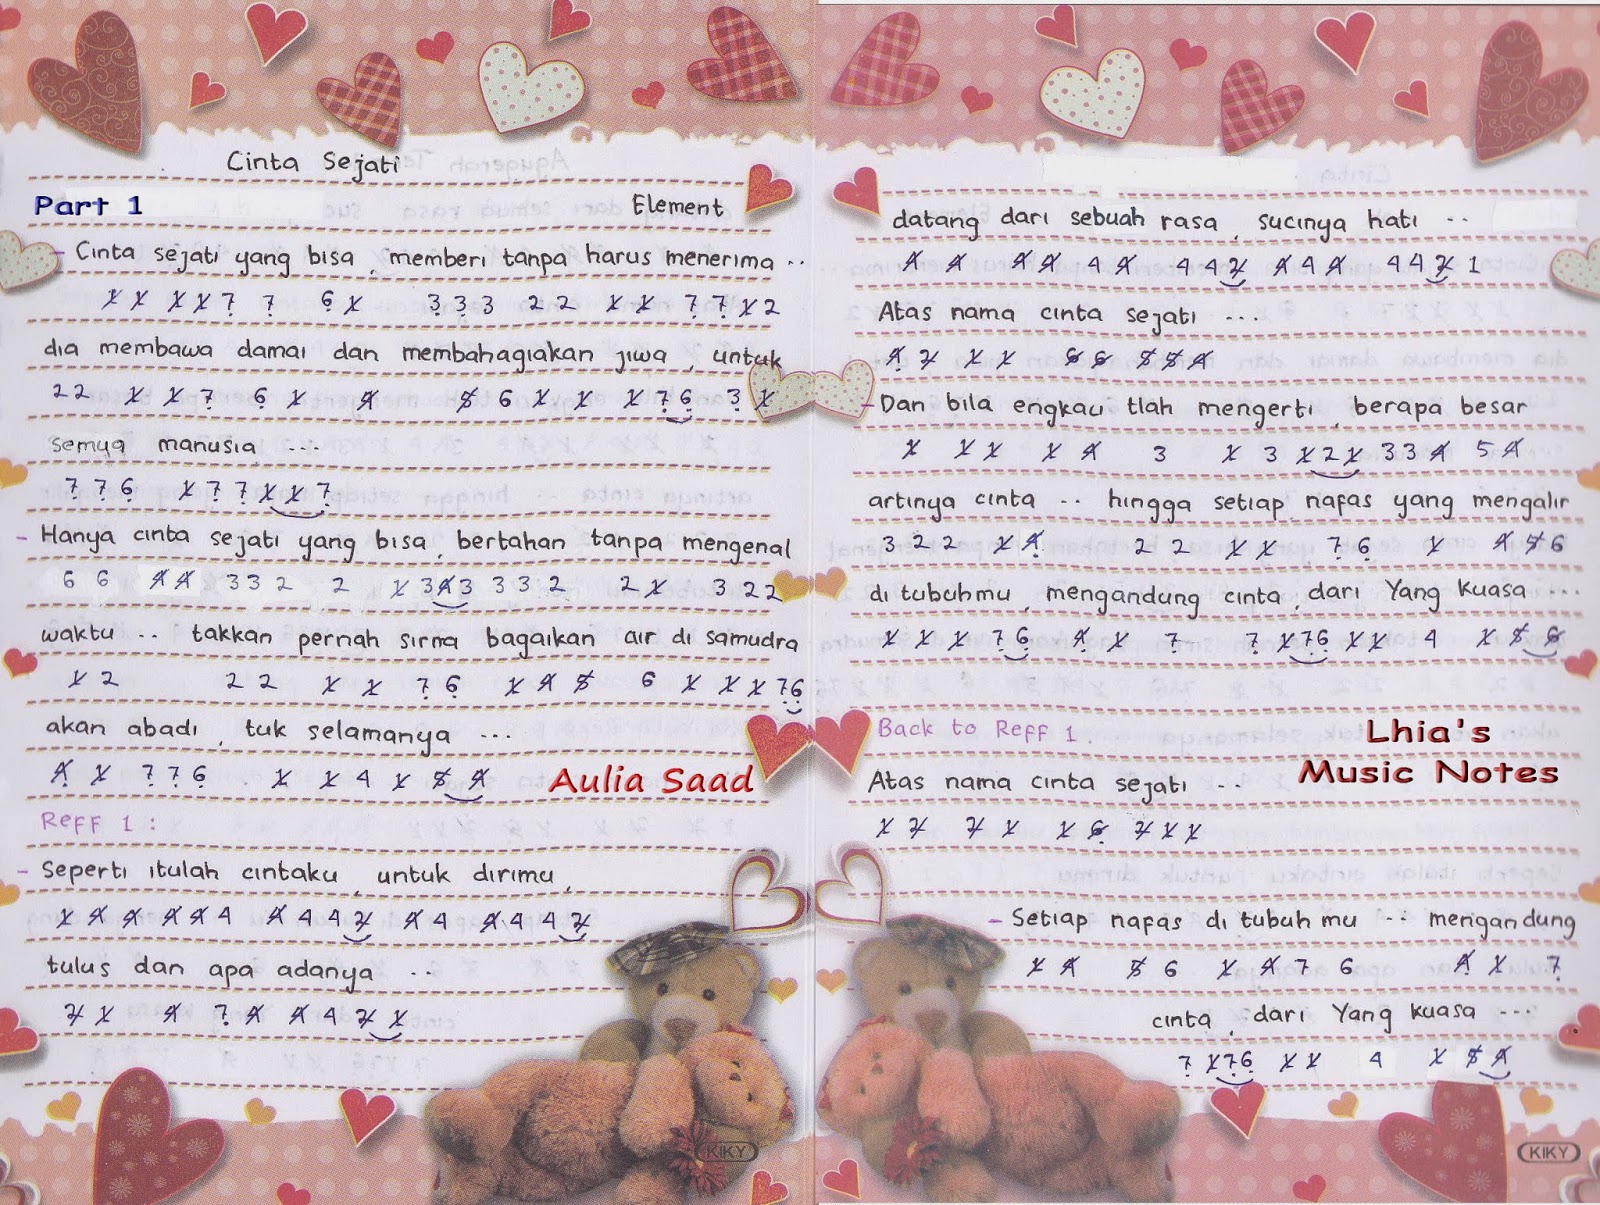 Cinta Sejati
Part 1 Element
- Cinta sejati yang bisa, memberi tanpa harus menerima ..
1̸ 1̸ 1̸ 1̸ 7̣ 7̣ 6̣ 1̸ 3̣ 3̣ 3 2 2 1̸ 1̸ 7̣ 7̣ 1̸ 2
dia membawa damai dan membahagiakan jiwa, untuk
2 2 1̸ 1̸ 7̣ 6̣ 1̸ 4̸ 5̸ 6 1̸ 1̸ 1̸ 7̣ 6̣ 3̣ 1̸
semua manusia ...
7̣ 7̣ 6̣ 1̸ 7̣ 7̣ 1̸ 1̸ 7̣
- Hanya cinta sejati yang bisa, bertahan tanpa mengenal
6 6 4̸ 4̸ 3 3 2 2 1̸ 3 4̸ 3 3 3 2 2 1̸ 3 2 2
waktu .. takkan pernah sirna bagaikan air di samudra
1̸ 2 2 2 1̸ 1̸ 7̣ 6̣ 1̸ 4̸ 5̸ 6 1̸ 1̸ 1̸ 7̣ 6̣
akan abadi, tuk selamanya ...
4̸̣ 1̸ 7̣ 7̣ 6̣ 1̸ 1̸ 4 1̸ 5̸ 4̸
Aulia Saad
Reff 1 :
- Seperti itulah cintaku, untuk dirimu,
1̸ 4̸ 4̸ 4̸ 4̸ 4 4̸ 4 4 2̸ 4̸ 4 4̸ 4 4 2̸
tulus dan apa adanya ..
2̸ 1̸ 4̸ 7̣ 4̸ 4̸ 4 2̸ 1̸
KIKY
datang dari sebuah rasa, sucinya hati ..
4̸ 4̸ 4̸ 4̸ 4 4̸ 4 4 2̸ 4̸ 4 4̸ 4 4 2̸ 1
Atas nama cinta sejati ...
4̸̣ 2̸ 1̸ 1̸ 6̸ 6̸ 5̸ 5̸ 4̸
- Dan bila engkau tlah mengerti, berapa besar
1̸ 1̸ 1̸ 1̸ 4̸ 3 1̸ 3 1̸ 2 1̸ 3 3 4̸ 5 4̸
artinya cinta .. hingga setiap nafas yang mengalir
3 2 2 1̸ 4̸̣ 2 2 1̸ 1̸ 7̣ 6̣ 1̸ 4̸ 5̸ 6
di tubuhmu, mengandung cinta, dari Yang Kuasa ...
1̸ 1̸ 1̸ 7̣ 6̣ 4̸̣ 1̸ 7̣ 7̣ 1̸ 7̣ 6̣ 1̸ 1̸ 4 1̸ 5̸ 6̸
Back to Reff 1
Lhia's
Music Notes
Atas nama cinta sejati ..
1̸ 2̸ 2̸ 1̸ 1̸ 6̸̣ 2̸ 1̸ 1̸
- Setiap nafas di tubuh mu .. mengandung
1̸ 4̸ 5̸ 6 1̸ 4̸ 7 6 4̸̣ 1̸ 7̣
cinta, dari Yang kuasa ...
7̣ 1̸ 7̣ 6̣ 1̸ 1̸ 4 1̸ 5̸ 4̸
KIKY